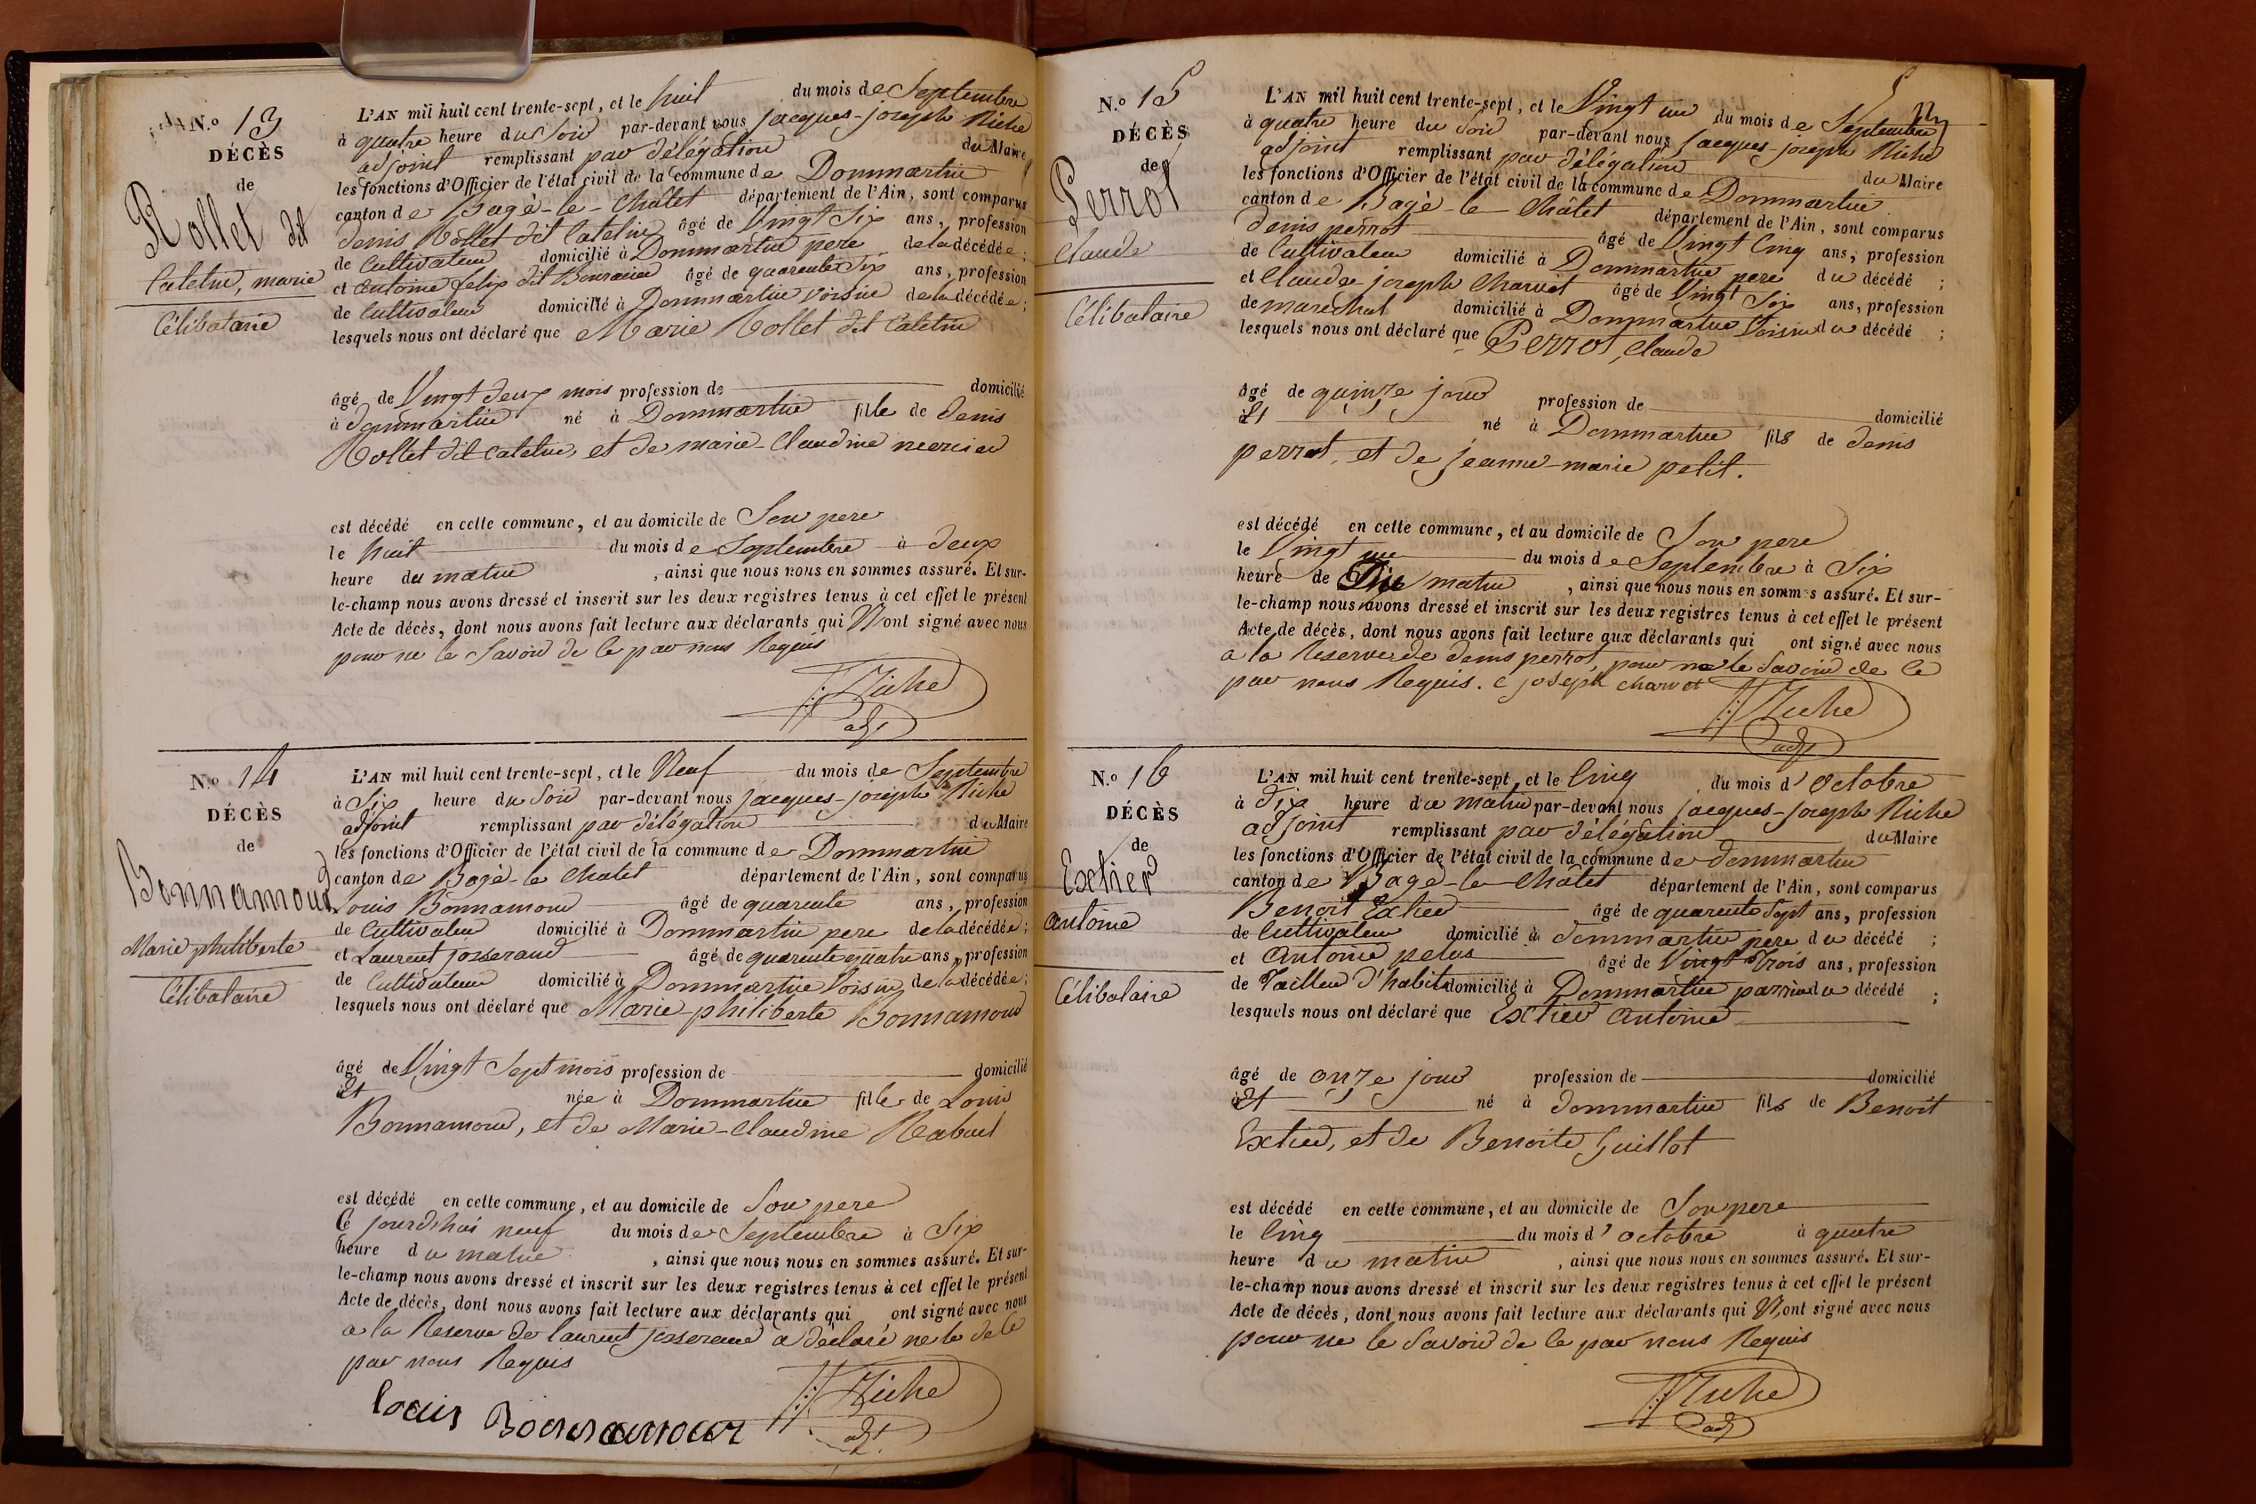 N.º 13
DÉCÈS
de
Rollet dit
Catetin, marie
Célibataire
L'AN mil huit cent trente-sept, et le huit du mois de Septembre
à quatre heure du Soir par-devant nous jacques-joseph Riche
adjoint remplissant par délégation du Maire
les fonctions d'Officier de l'état civil de la commune de Dommartin
canton de Bagé-le-Châtet département de l'Ain, sont comparus
denis Rollet dit Catetin âgé de Vingt Six ans, profession
de Cultivateur domicilié à Dommartin pere de la décédée ;
et antoine felix dit âgé de quarente Six ans, profession
de Cultivateur domicilié à Dommartin voisin de la décédée ;
lesquels nous ont déclaré que Marie Rollet dit Catetin
âgé de Vingt deux mois profession de domicilié
à dommartin né à Dommartin fille de denis
Rollet dit Catetin, et de marie-Claudine mercier
est décédé en cette commune, et au domicile de Son pere
le huit du mois de Septembre à deux
heure du matin , ainsi que nous nous en sommes assuré. Et sur-
le-champ nous avons dressé et inscrit sur les deux registres tenus à cet effet le présent
Acte de décès, dont nous avons fait lecture aux déclarants qui N'ont signé avec nous
pour ne le Savoir de ce par nous Requis
Riche
adj
N.º 14
DÉCÈS
de
Bonnamour
Marie philiberte
Célibataire
L'AN mil huit cent trente-sept, et le Neuf du mois de Septembre
à Six heure du Soir par-devant nous jacques-joseph Riche
adjoint remplissant par délégation du Maire
les fonctions d'Officier de l'état civil de la commune de Dommartin
canton de Bagé-le Chatet département de l'Ain, sont comparus
Louis Bonnamour âgé de quarente ans, profession
de Cultivateur domicilié à Dommartin pere de la décédée ;
et Laurent josserand âgé de quarente quatre ans, profession
de Cultivateur domicilié à Dommartin Voisin de la décédée ;
lesquels nous ont déclaré que Marie-philiberte Bonnamour
âgé de Vingt Sept mois profession de domicilié
Et née à Dommartin fille de Louis
Bonnamour, et de Marie-Claudine Rabuel
est décédé en cette commune, et au domicile de Son pere
Ce jourdhui neuf du mois de Septembre à Six
heure du matin , ainsi que nous nous en sommes assuré. Et sur-
le-champ nous avons dressé et inscrit sur les deux registres tenus à cet effet le présent
Acte de décès, dont nous avons fait lecture aux déclarants qui ont signé avec nous
a la Reserve de laurent josserand a declaré ne le de ce
par nous Requis
Louis Bonnamour
Riche
adjt
N.º 15
DÉCÈS
de
Perrot
Claude
Célibataire
L'AN mil huit cent trente-sept, et le Vingt un du mois de Septembre
à quatre heure du Soir par-devant nous jacques-joseph Riche
adjoint remplissant par délégation du Maire
les fonctions d'Officier de l'état civil de la commune de Dommartin
canton de Bagé-le Châtet département de l'Ain, sont comparus
denis perrot âgé de Vingt Cinq ans, profession
de Cultivateur domicilié à Dommartin pere du décédé ;
et Claude joseph Charvet âgé de Vingt Six ans, profession
de marechal domicilié à Dommartin Voisin du décédé ;
lesquels nous ont déclaré que Perrot, Claude
âgé de quinze jour profession de domicilié
Et né à Dommartin fils de denis
perrot, et de jeanne-marie petit.
est décédé en cette commune, et au domicile de Son pere
le Vingt un du mois de Septembre à Six
heure de matin , ainsi que nous nous en sommes assuré. Et sur-
le-champ nous avons dressé et inscrit sur les deux registres tenus à cet effet le présent
Acte de décès, dont nous avons fait lecture aux déclarants qui ont signé avec nous
a la Reserve de denis perrot, pour ne le Savoir de ce
par nous Requis. C joseph charvet
Riche
adj
N.º 16
DÉCÈS
de
Extier
antoine
Célibataire
L'AN mil huit cent trente-sept, et le Cinq du mois d'Octobre
à dix heure du matin par-devant nous jacques-joseph Riche
adjoint remplissant par délégation du Maire
les fonctions d'Officier de l'état civil de la commune de dommartin
canton de Bagé-le-Châtet département de l'Ain, sont comparus
Benoit Extier âgé de quarente Sept ans, profession
de Cultivateur domicilié à dommartin pere du décédé ;
et Antoine pelus âgé de Vingt Trois ans, profession
de Tailleur d'habits domicilié à Dommartin parrin du décédé ;
lesquels nous ont déclaré que Extier antoine
âgé de onze jour profession de domicilié
Et né à dommartin fils de Benoit
Extier, et de Benoite Guillot
est décédé en cette commune, et au domicile de Son pere
le Cinq du mois d'octobre à quatre
heure du matin , ainsi que nous nous en sommes assuré. Et sur-
le-champ nous avons dressé et inscrit sur les deux registres tenus à cet effet le présent
Acte de décès, dont nous avons fait lecture aux déclarants qui N'ont signé avec nous
pour ne le Savoir de ce par nous Requis
Riche
adj